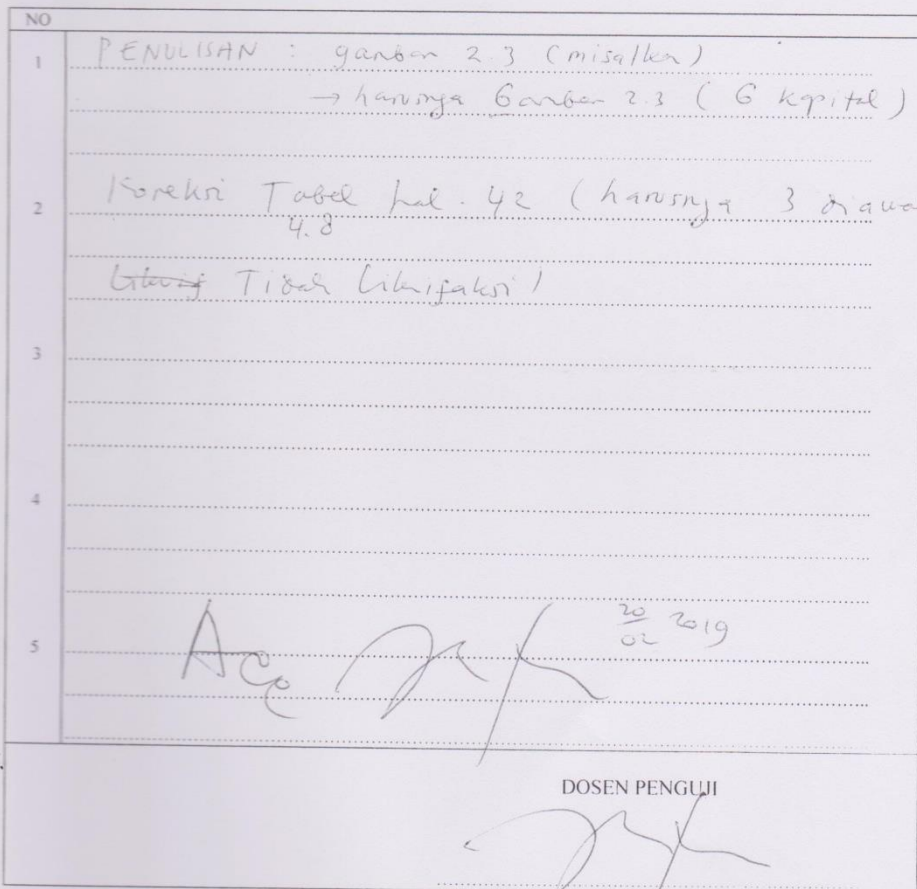 NO
1 PENULISAN : gambar 2.3 (misalkan)
→ harusnya Gambar 2.3 ( G kapital )
2 Koreksi Tabel hal. 42 (harusnya 3 diawa
4.8
Tidak Likuifaksi)
3
4
5 Acc 20/02 2019
DOSEN PENGUJI